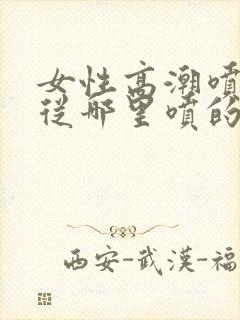 女性高潮噴
從哪里噴的
西安-武漢-福